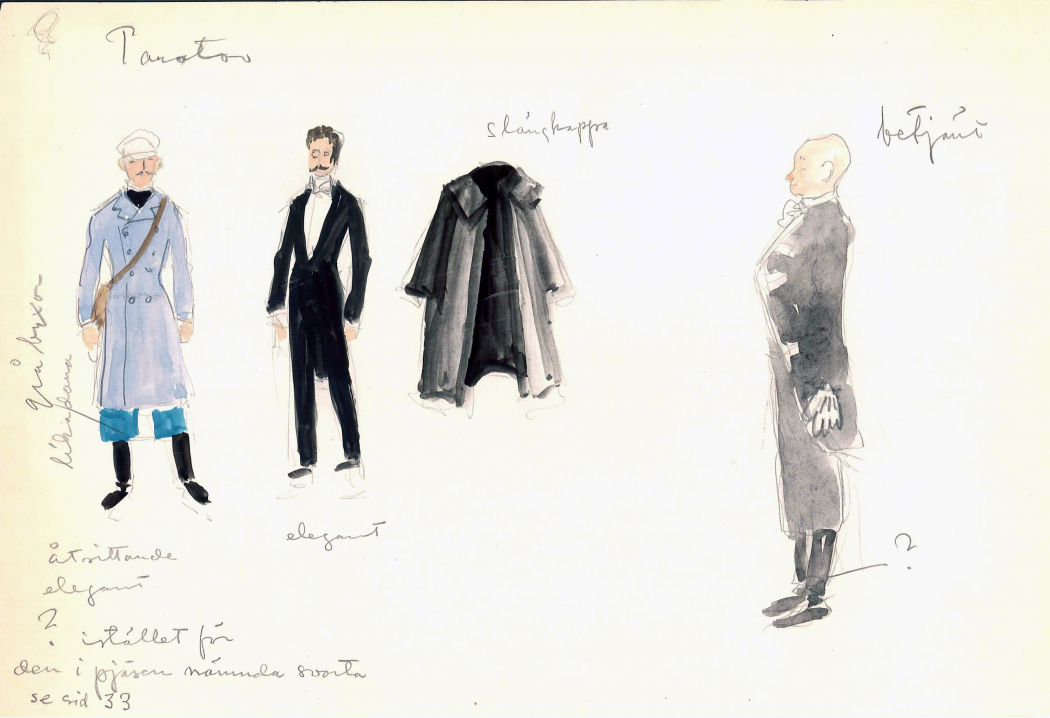 Paratov
slängkappa
betjänt
grå byxor
likadana
elegant
åtsittande
elegant
?
?
istället för
den i pjäsen nämnda svarta
se sid 33